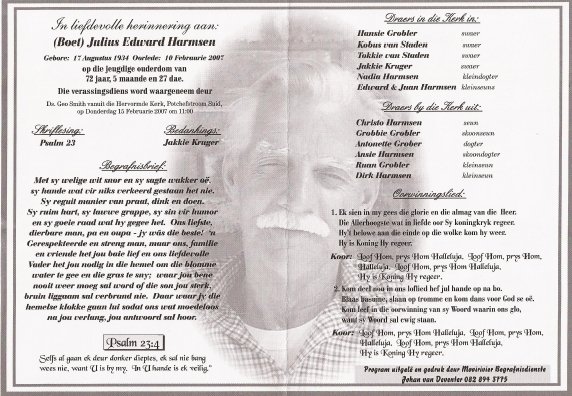 In liefdevolle herinnering aan:
(Boet) Julius Edward Harmsen
Gebore: 17 Augustus 1934 Oorlede: 10 Februarie 2007
op die jeugdige ouderdom van
72 jaar, 5 maande en 27 dae.
Die verassingsdiens word waargeneem deur
Ds. Geo Smith vanuit die Hervormde Kerk, Potchefstroom Suid,
op Donderdag 15 Februarie 2007 om 11:00
Skriflesing: Bedankings:
Psalm 23 Jakkie Kruger
Begrafnisbrief:
Met sy welige wit snor en sy sagte wakker oë.
sy hande wat vir niks verkeerd gestaan het nie.
Sy reguit manier van praat, dink en doen.
Sy ruim hart, sy lawwe grappe, sy sin vir humor
en sy goeie raad wat hy gegee het. Ons liefste,
dierbare man, pa en oupa - jy wás die beste! 'n
Gerespekteerde en streng man, maar ons, familie
en vriende het jou baie lief en ons liefdevolle
Vader het jou nodig in die hemel om die blomme
water te gee en die gras te sny; waar jou bene
nooit weer moeg sal word of die son jou sterk,
bruin liggaam sal verbrand nie. Daar waar jy die
hemelse klokke gaan lui sodat ons wat moedeloos
na jou verlang, jou antwoord sal hoor.
Psalm 23:4
Selfs al gaan ek deur donker dieptes, ek sal nie bang
wees nie, want U is by my. In U hande is ek veilig."
Draers in die Kerk in:
Hansie Grobler swaer
Kobus van Staden swaer
Tokkie van Staden swaer
Jakkie Kruger swaer
Nadia Harmsen kleindogter
Edward & Juan Harmsen kleinseuns
Draers by die Kerk uit:
Christo Harmsen seun
Grobbie Grobler skoonseun
Antonette Grober dogter
Ansie Harmsen skoondogter
Ruan Grobler kleinseun
Dirk Harmsen kleinseun
Oorwinningslied:
1. Ek sien in my gees die glorie en die almag van die Heer.
Die Allerhoogste wat in liefde oor Sy koningkryk regeer.
Hy'l belowe aan die einde op die wolke kom hy weer.
Hy is Koning Hy regeer.
Koor: Loof Hom, prys Hom Halleluja, Loof Hom, prys Hom,
Halleluja, Loof Hom, prys Hom Halleluja,
Hy is Koning Hy regeer.
2. Kom deel nou in ons loflied hef jul hande op na bo.
Blaas basuine, slaan op tromme en kom dans voor God se oë.
Kom leef in die oorwinning van sy Woord waarin ons glo,
want sy Woord sal ewig staan.
Koor: Loof Hom, prys Hom Halleluja, Loof Hom, prys Hom,
Halleluja, Loof Hom, prys Hom Halleluja,
Hy is Koning Hy regeer.
Program uitgelê en gedruk deur Mooirivier Begrafnisdienste
Johan van Deventer 082 894 3775